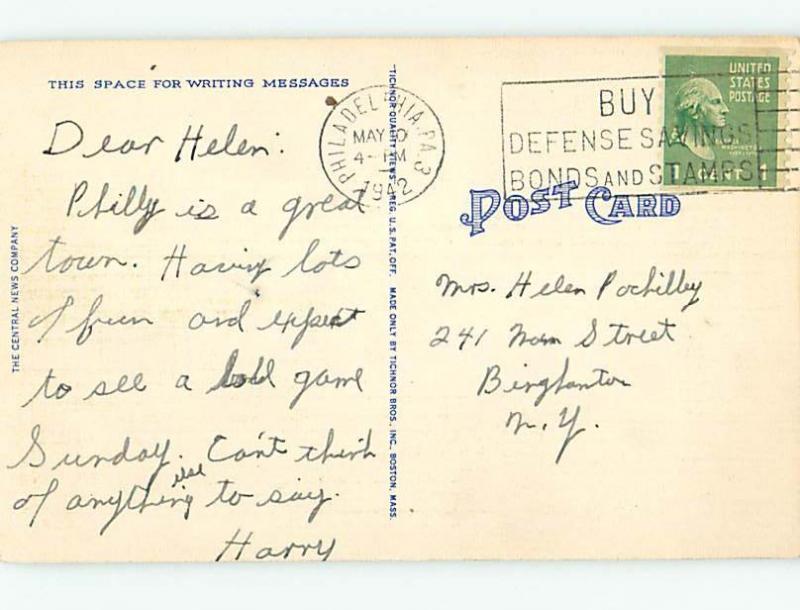 THIS SPACE FOR WRITING MESSAGES
Dear Helen:
Philly is a great
town. Having lots
of fun and expect
to see a ball game
Sunday. Can't think
of anything else to say.
Harry
THE CENTRAL NEWS COMPANY
"TICHNOR QUALITY VIEWS," REG. U. S. PAT. OFF. MADE ONLY BY TICHNOR BROS., INC., BOSTON, MASS.
PHILADELPHIA, PA. 3
MAY
4 - PM
1942
BUY
DEFENSE SAVINGS
BONDS AND STAMPS
UNITED
STATES
POSTAGE
WASHINGTON
1 CENT 1
POST CARD
Mrs. Helen Pochilby
241 Street
Binghamton
N.Y.